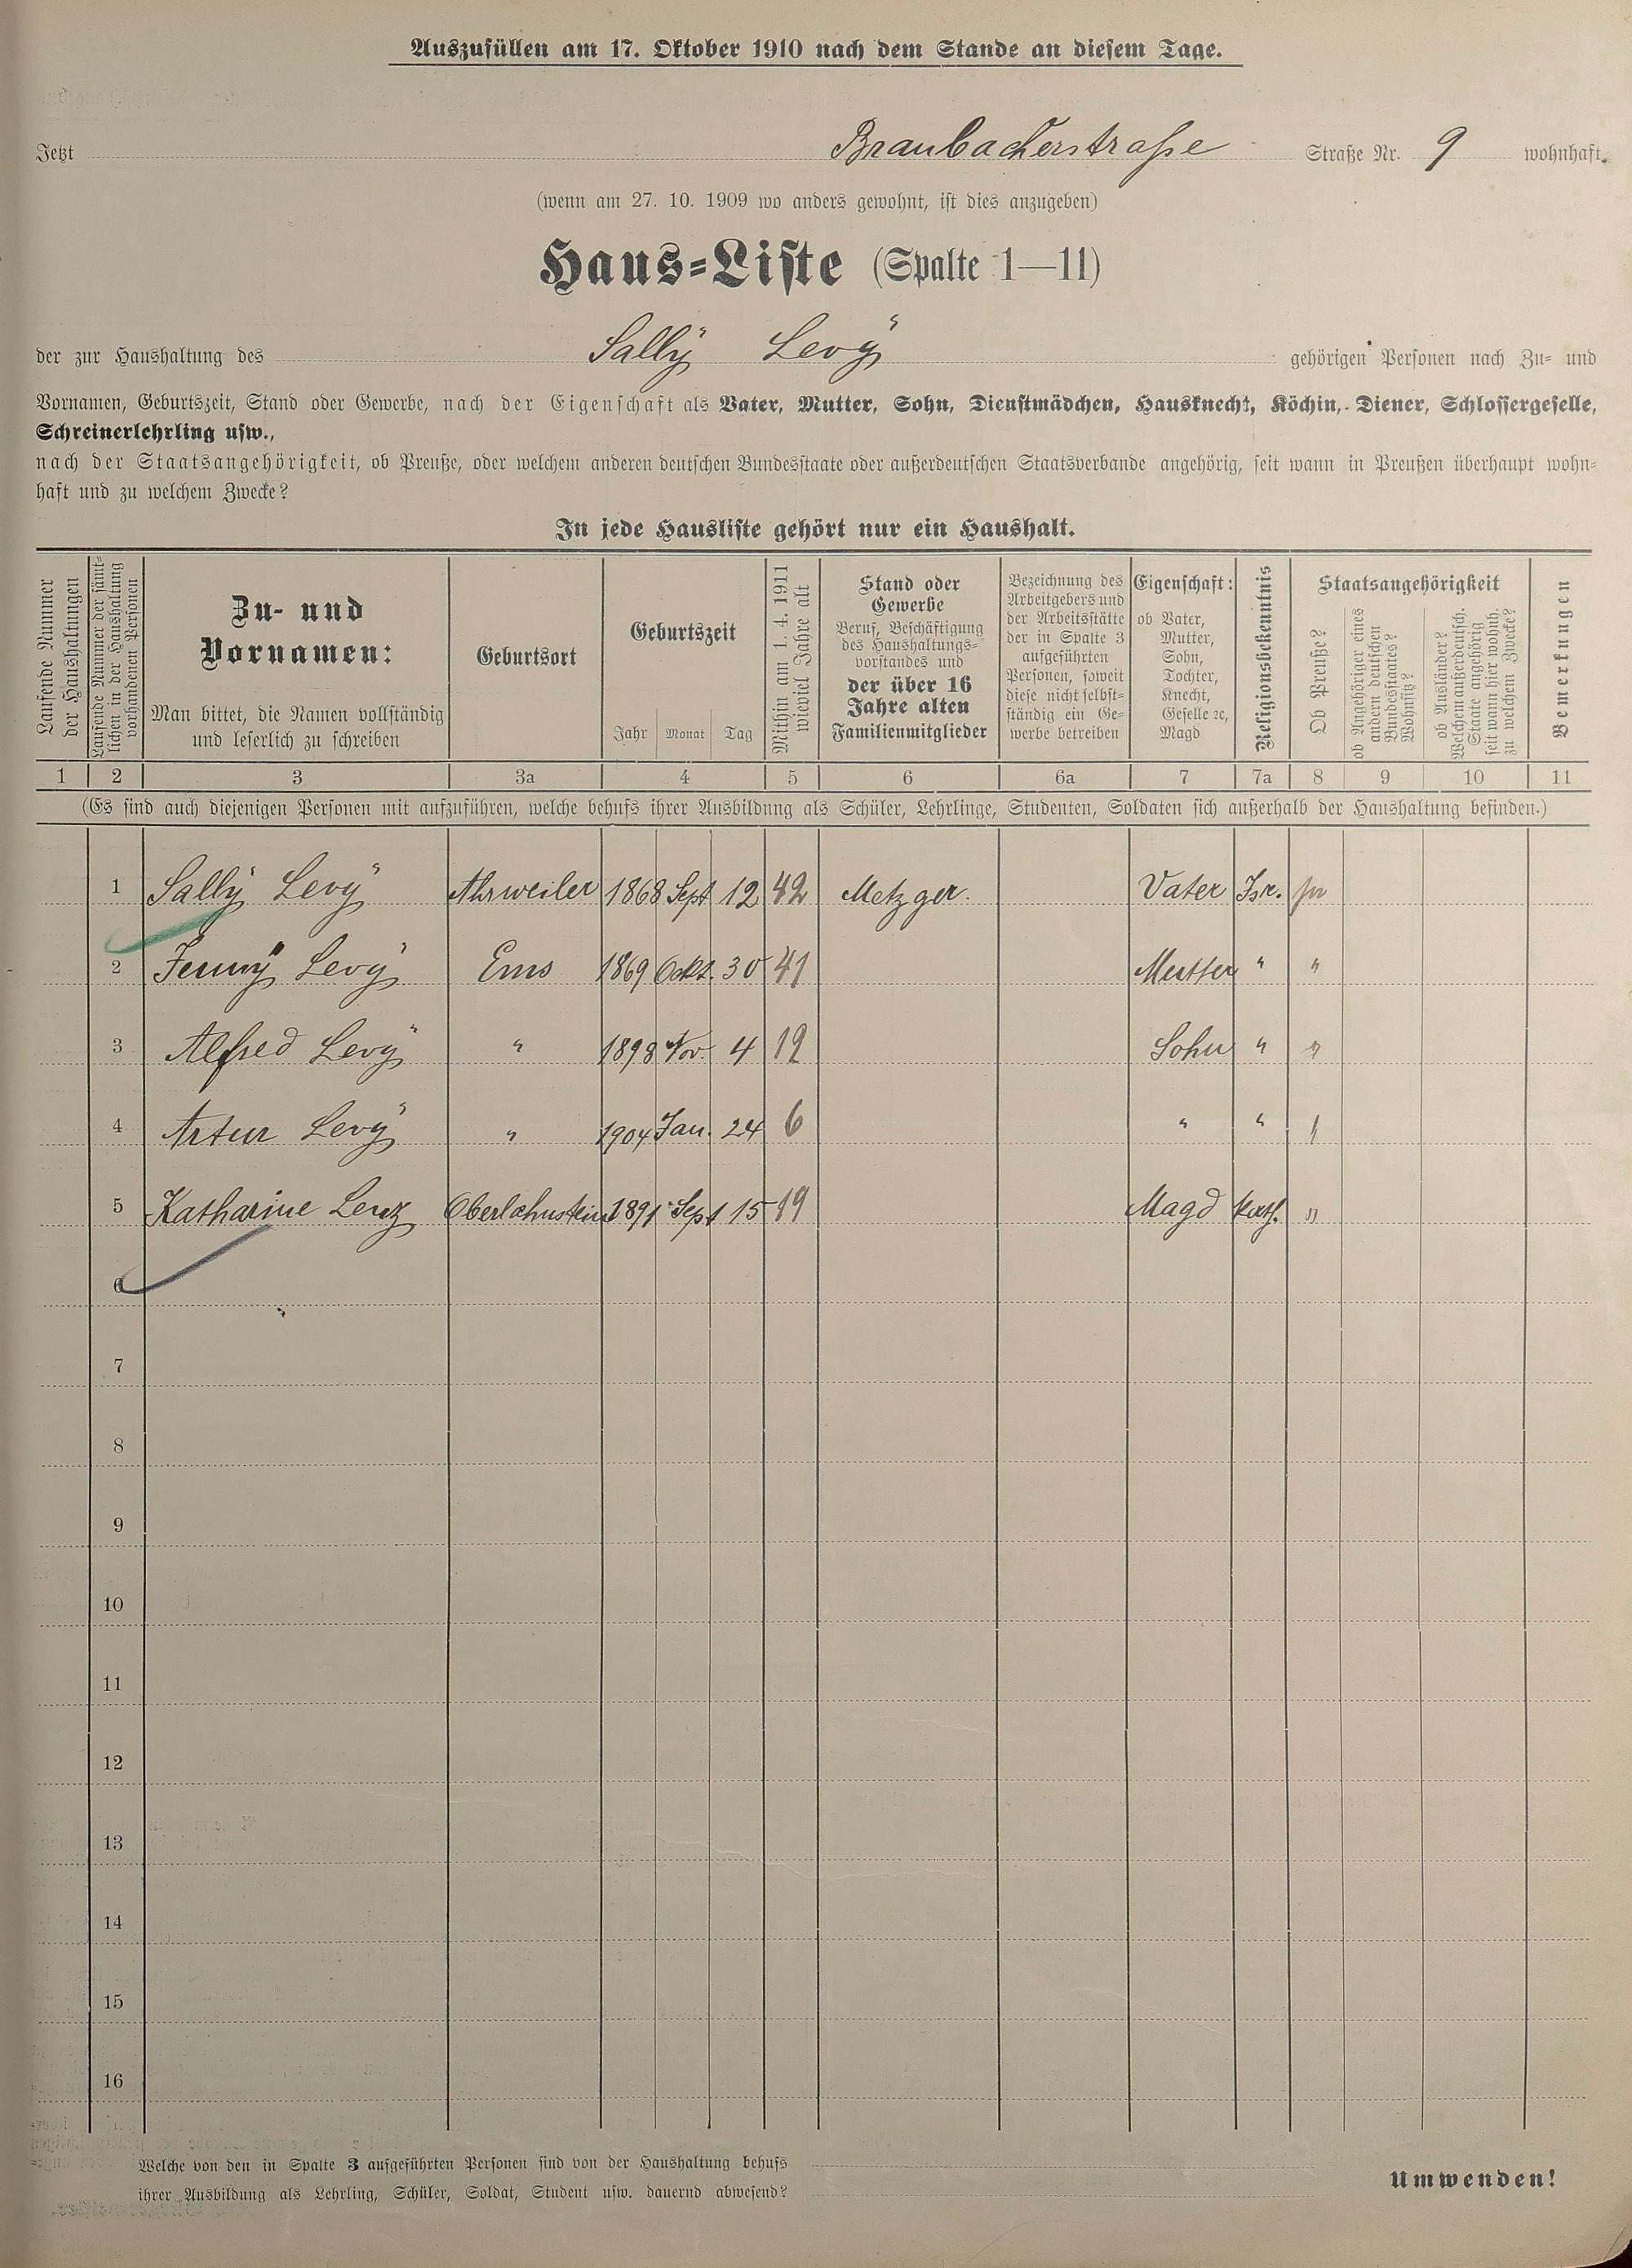 Auszufüllen am 17. Oktober 1910 nach dem Stande an diesem Tage.
Jetzt Braubacherstraße Straße Nr. 9 wohnhaft.
(wenn am 27. 10. 1909 wo anders gewohnt, ist dies anzugeben)
Haus-Liste (Spalte 1—11)
der zur Haushaltung des Sally Levy gehörigen Personen nach Zu- und
Vornamen, Geburtszeit, Stand oder Gewerbe, nach der Eigenschaft als Vater, Mutter, Sohn, Dienstmädchen, Hausknecht, Köchin, Diener, Schlossergeselle,
Schreinerlehrling usw.,
nach der Staatsangehörigkeit, ob Preuße, oder welchem anderen deutschen Bundesstaate oder außerdeutschen Staatsverbande angehörig, seit wann in Preußen überhaupt wohn-
haft und zu welchem Zwecke?
In jede Hausliste gehört nur ein Haushalt.
Laufende Nummer
der Haushaltungen
Laufende Nummer der sämt-
lichen in der Haushaltung
vorhandenen Personen
Zu- und
Vornamen:
Man bittet, die Namen vollständig
und leserlich zu schreiben
Geburtsort
Geburtszeit
Jahr Monat Tag
Mithin am 1. 4. 1911
wieviel Jahre alt
Stand oder
Gewerbe
Beruf, Beschäftigung
des Haushaltungs-
vorstandes und
der über 16
Jahre alten
Familienmitglieder
Bezeichnung des
Arbeitgebers und
der Arbeitsstätte
der in Spalte 3
aufgeführten
Personen, soweit
diese nicht selbst-
ständig ein Ge-
werbe betreiben
Eigenschaft:
ob Vater,
Mutter,
Sohn,
Tochter,
Knecht,
Geselle ꝛc,
Magd
Religionsbekenntnis
Staatsangehörigkeit
Ob Preuße?
ob Angehöriger eines
andern deutschen
Bundesstaates?
Wohnsitz?
ob Ausländer?
Welchem außerdeutsch.
Staate angehörig
seit wann hier wohnh.
zu welchem Zwecke?
Bemerkungen
1 2 3 3a 4 5 6 6a 7 7a 8 9 10 11
(Es sind auch diejenigen Personen mit aufzuführen, welche behufs ihrer Ausbildung als Schüler, Lehrlinge, Studenten, Soldaten sich außerhalb der Haushaltung befinden.)
1 Sally Levy Ahrweiler 1868 Sept 12 42 Metzger. Vater Isr.
2 Jenny Levy Ems 1869 Okt. 30 41 Mutter " "
3 Alfred Levy " 1898 Nov. 4 12 Sohn " "
4 Artur Levy " 1904 Jan. 24 6 " " "
5 Katharine Lenz Oberlahnstein 1891 Sept 15 19 Magd kath. "
6
7
8
9
10
11
12
13
14
15
16
Welche von den in Spalte 3 aufgeführten Personen sind von der Haushaltung behufs
ihrer Ausbildung als Lehrling, Schüler, Soldat, Student usw. dauernd abwesend?
Umwenden!